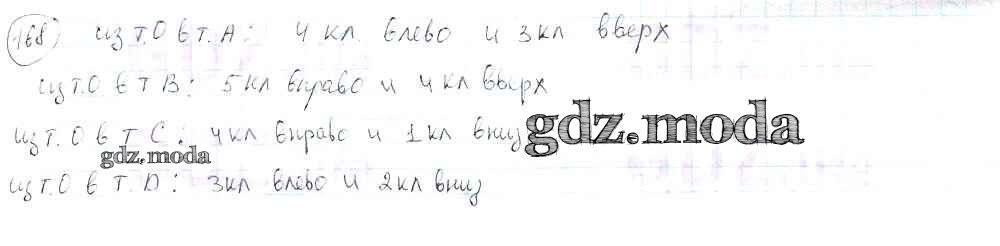 168) из т.О в т.А: 4 кл. влево и 3 кл вверх
из т.О в т В: 5 кл вправо и 4 кл вверх
из т.О в т С: 4 кл вправо и 1 кл вниз
gdz.moda
gdz.moda
из т.О в т.D: 3 кл влево и 2 кл вниз